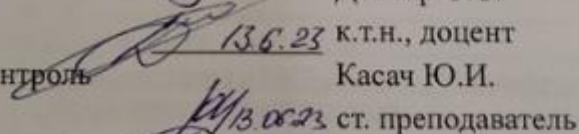 13.6.23 к.т.н., доцент
нтроль Касач Ю.И.
13.06.23 ст. преподаватель